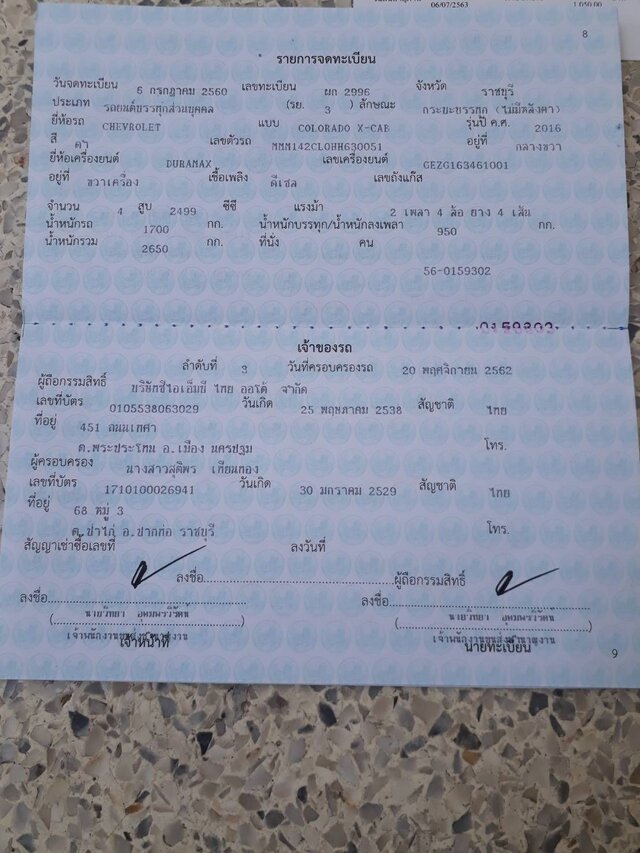 06/07/2563 1,050.00
8
รายการจดทะเบียน
วันจดทะเบียน 6 กรกฎาคม 2560 เลขทะเบียน ผก 2996 จังหวัด ราชบุรี
ประเภท รถยนต์บรรทุกส่วนบุคคล (รย. 3 ) ลักษณะ กระบะบรรทุก (ไม่มีหลังคา)
ยี่ห้อรถ CHEVROLET แบบ COLORADO X-CAB รุ่นปี ค.ศ. 2016
สี ดำ เลขตัวรถ MMM142CL0HH630051 อยู่ที่ กลางขวา
ยี่ห้อเครื่องยนต์ DURAMAX เลขเครื่องยนต์ GEZG163461001
อยู่ที่ ขวาเครื่อง เชื้อเพลิง ดีเซล เลขถังแก๊ส
จำนวน 4 สูบ 2499 ซีซี แรงม้า 2 เพลา 4 ล้อ ยาง 4 เส้น
น้ำหนักรถ 1700 กก. น้ำหนักบรรทุก/น้ำหนักลงเพลา 950 กก.
น้ำหนักรวม 2650 กก. ที่นั่ง คน
56-0159302
0159302
เจ้าของรถ
ลำดับที่ 3 วันที่ครอบครองรถ 20 พฤศจิกายน 2562
ผู้ถือกรรมสิทธิ์ บริษัทซีไอเอ็มบี ไทย ออโต้ จำกัด
เลขที่บัตร 0105538063029 วันเกิด 25 พฤษภาคม 2538 สัญชาติ ไทย
ที่อยู่ 451 ถนนเทศา
ต.พระประโทน อ.เมือง นครปฐม โทร.
ผู้ครอบครอง นางสาวสุติพร เทียนทอง
เลขที่บัตร 1710100026941 วันเกิด 30 มกราคม 2529 สัญชาติ ไทย
ที่อยู่ 68 หมู่ 3
ต.ป่าไก่ อ.ปากท่อ ราชบุรี โทร.
สัญญาเช่าซื้อเลขที่ ลงวันที่
ลงชื่อ ผู้ถือกรรมสิทธิ์
ลงชื่อ ลงชื่อ
นายวิทยา นายวิทยา
เจ้าพนักงานขนส่งชำนาญงาน เจ้าพนักงานขนส่งชำนาญงาน
เจ้าหน้าที่ นายทะเบียน
9